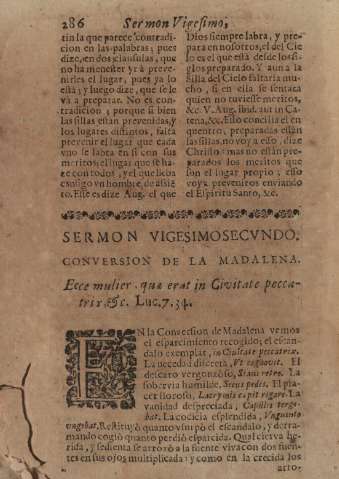 286 Sermon Vigesimo,
tin la que parece contradi-
cion en las palabras; pues
dize, en dos clausulas, que
no ha menester yr à preve-
nirles el lugar, pues ya lo
està; y luego dize, que se le
và à preparar. No es con-
tradicion; porque si bien
las sillas estàn prevenidas, y
los lugares distintos, falta
prevenir el lugar que cada
vno se labra en si con sus
meritos; el lugar que se ha-
ze con todos, y el que
consigo vn hombre, de assie
to. Este es dize Aug. el que
Dios siempre labra, y pre-
para en nosotros, el del Cie
lo es el que està desde los si-
glos preparado. Y aun a la
silla del Cielo faltaria mu-
cho, si en ella se sentara
quien no tuviesse meritos,
&c. V. Aug. ibid. aut in Ca-
tena, &c. Esto concilia el en
quentro, preparadas estàn
las sillas, no voy a esso, dize
Christo: mas no estàn pre-
parados los meritos que
son el lugar propio; a esso
voy à preveniros enviando
el Espiritu Santo, &c.
SERMON VIGESIMOSECVNDO.
CONVERSION DE LA MADALENA.
Ecce mulier, quæ erat in Civitate pecca-
trix, &c. Luc. 7. 34.
EN la Conversion de Madalena vemos
el esparcimiento recogido; el escan-
dalo exemplar, in Civitate peccatrix.
La necedad discreta, Vt cognovit. El
descaro vergonçoso, Stans retro. La
sobervia humilde, Secus pedes. El pla-
cer lloroso, Lacrymis cæpit rigare. La
vanidad despreciada, Capillis terge-
bat. La codicia esplendida, Vnguento
vngebat. Restituyò quanto vsurpò el escandalo, y derra-
mando cogiò quanto perdiò esparcida. Qual cierva he-
rida, y sedienta se arrojò a la fuente vivacon dos fuen-
tes en sus ojos multiplicada: y como en la crecida los
arro-